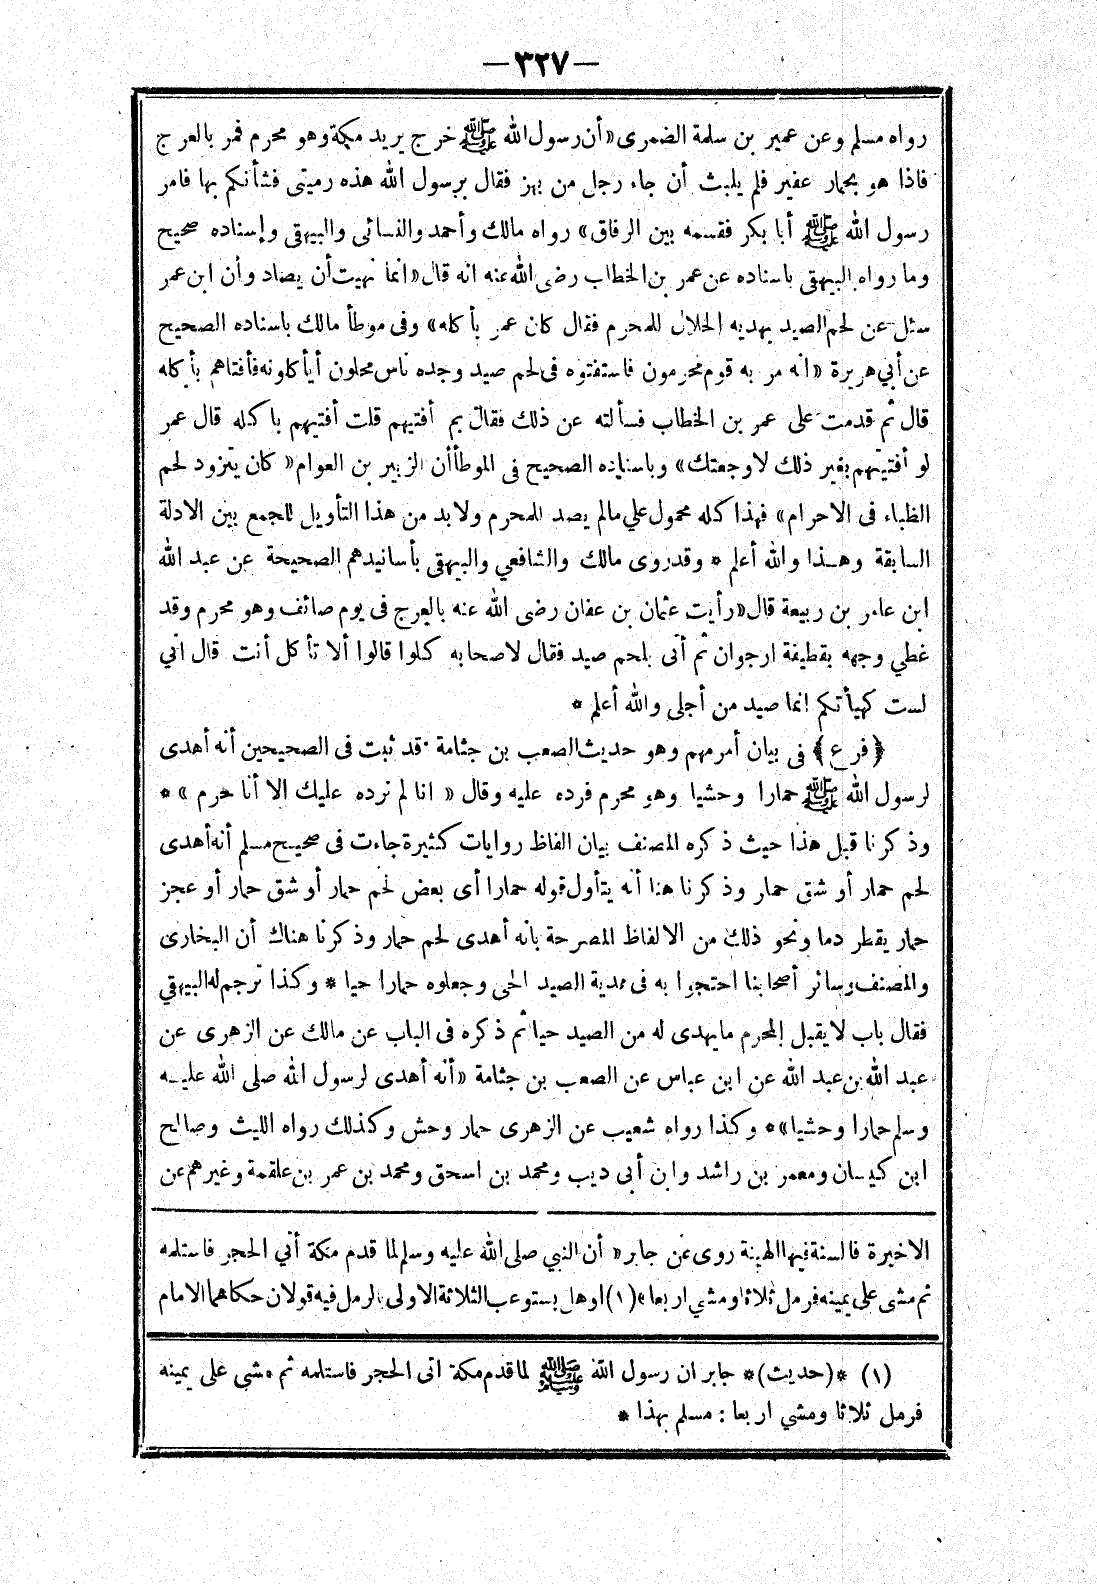 —٣٢٧—
رواه مسلم وعن عمير بن سلمة الضمرى «أن رسول الله ﷺ خرج يريد مكة وهو محرم فمر بالعرج
فاذا هو بحمار عقير فلم يلبث أن جاء رجل من بهز فقال يرسول الله هذه رميتى فشأنكم بها فامر
رسول الله ﷺ أبا بكر فقسمه بين الرفاق» رواه مالك وأحمد والنسائى والبيهقى وإسناده صحيح
وما رواه البيهقى باسناده عن عمر بن الخطاب رضى الله عنه انه قال «انما نهيت أن يصاد وأن ابن عمر
سئل عن لحم الصيد يهديه الحلال للمحرم فقال كان عمر يأكله» وفى موطأ مالك باسناده الصحيح
عن أبي هريرة «انه مر به قوم محرمون فاستفتوه فى لحم صيد وجده ناس محلون أيأكلونه فأفتاهم بأكله
قال ثم قدمت على عمر بن الخطاب فسألته عن ذلك فقال بم أفتيهم قلت أفتيهم باكله قال عمر
لو أفتيتهم بغير ذلك لاوجعتك» وباسناده الصحيح فى الموطأ أن الزبير بن العوام «كان يتزود لحم
الظباء فى الاحرام» فهذا كله محمول علي مالم يصد للمحرم ولا بد من هذا التأويل للجمع بين الادلة
السابقة وهـذا والله أعلم * وقد روى مالك والشافعي والبيهقى بأسانيدهم الصحيحة عن عبد الله
ابن عامر بن ربيعة قال «رأيت عثمان بن عفان رضى الله عنه بالعرج فى يوم صائف وهو محرم وقد
غطي وجهه بقطيفة ارجوان ثم أتى بلحم صيد فقال لاصحابه كلوا قالوا ألا تأكل أنت قال اني
لست كهيأتكم انما صيد من أجلى والله أعلم *
﴿فرع﴾ فى بيان أمر مهم وهو حديث الصعب بن جثامة قد ثبت فى الصحيحين أنه أهدى
لرسول الله ﷺ حمارا وحشيا وهو محرم فرده عليه وقال « انا لم نرده عليك الا أنا حرم » *
وذكرنا قبل هذا حيث ذكره المصنف بيان الفاظ روايات كثيرة جاءت فى صحيح مسلم أنه أهدى
لحم حمار أو شق حمار وذكرنا هنا أنه يتأول قوله حمارا أى بعض لحم حمار أو شق حمار أو عجز
حمار يقطر دما ونحو ذلك من الالفاظ المصرحة بانه أهدى لحم حمار وذكرنا هناك أن البخارى
والمصنف وسائر أصحابنا احتجوا به فى هدية الصيد الحى وجعلوه حمارا حيا * وكذا ترجم له البيهقي
فقال باب لا يقبل المحرم ما يهدى له من الصيد حيا ثم ذكره فى الباب عن مالك عن الزهرى عن
عبد الله بن عبد الله عن ابن عباس عن الصعب بن جثامة «أنه أهدى لرسول الله صلى الله عليـه
وسلم حمارا وحشيا»* وكذا رواه شعيب عن الزهرى حمار وحش وكذلك رواه الليث وصالح
ابن كيسان ومعمر بن راشد وابن أبى ديب ومحمد بن اسحق ومحمد بن عمر بن علقمة وغيرهم عن
الاخيرة فالسنة فيها الهينة روى عن جابر« أن النبي صلى الله عليه وسلم لما قدم مكة أتي الحجر فاستلمه
ثم مشى على يمينه فرمل ثلاثا ومشي اربعا»(١) وهل يستوعب الثلاثة الاولى بالرمل فيه قولان حكاهما الامام
(١) *(حديث)* جابر ان رسول الله ﷺ لما قدم مكة اتى الحجر فاستلمه ثم مشى على يمينه
فرمل ثلاثا ومشي اربعا : مسلم بهذا *